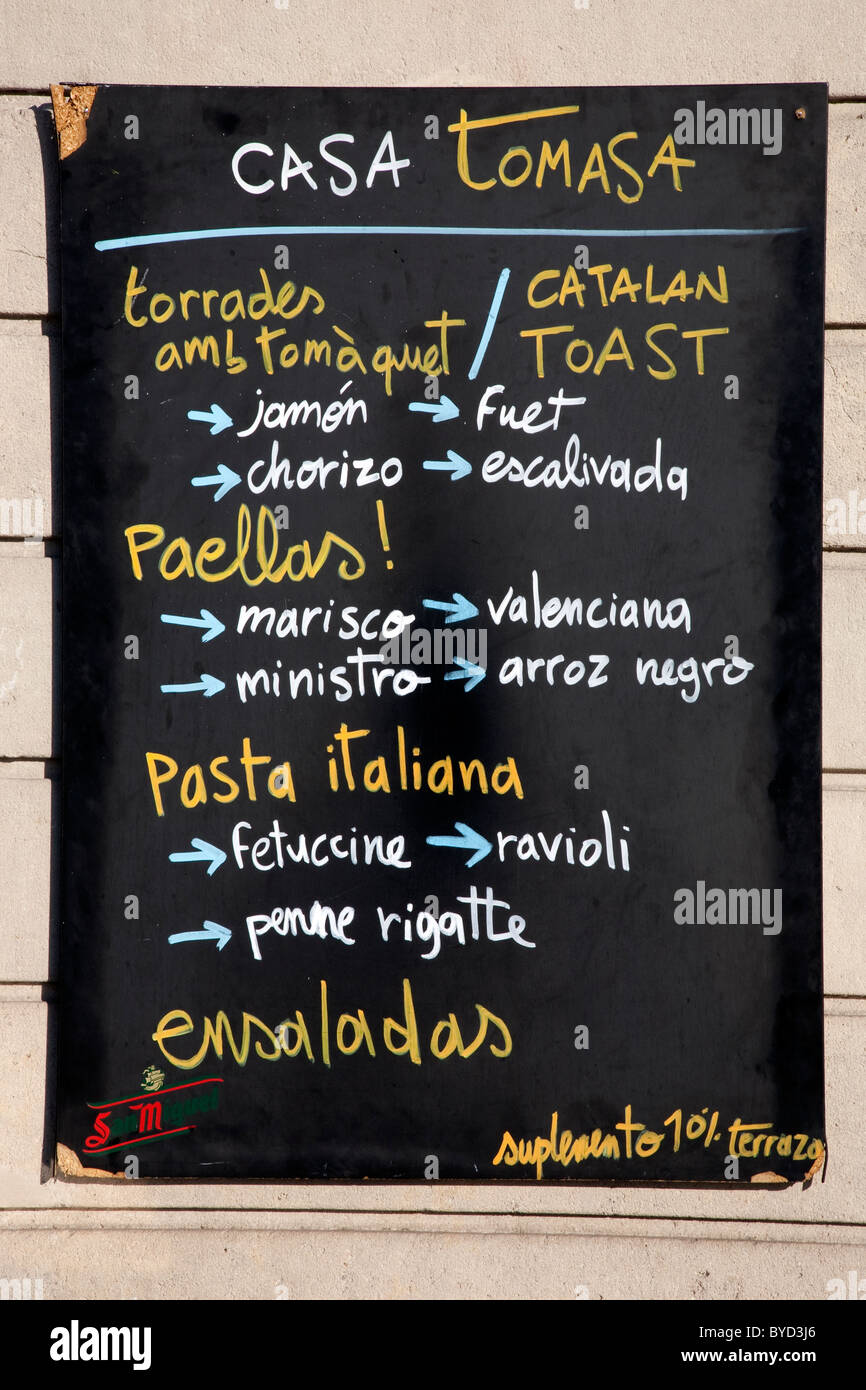 CASA TOMASA
torrades amb tomàquet / CATALAN TOAST
→ jamón → Fuet
→ chorizo → escalivada
Paellas!
→ marisco → valenciana
→ ministro → arroz negro
Pasta italiana
→ fetuccine → ravioli
→ penne rigatte
ensaladas
San Miguel
suplemento 10% terrazo
alamy
Image ID: BYD3J6
www.alamy.com